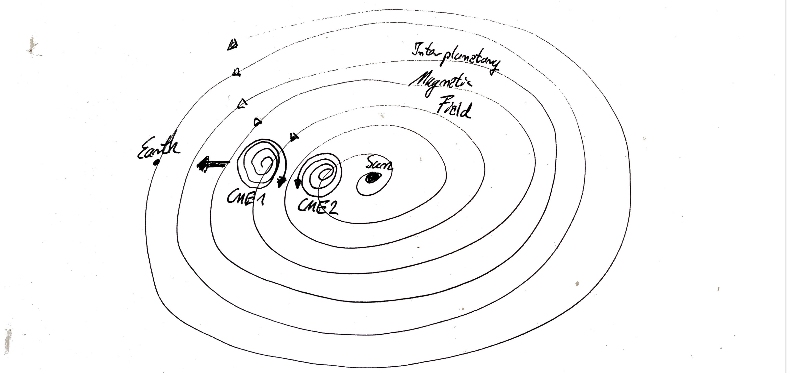 Interplanetary
Magnetic
Field
Earth
Sun
CME1
CME2